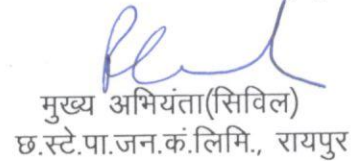 मुख्य अभियंता(सिविल)
छ.स्टे.पा.जन.कं.लिमि., रायपुर